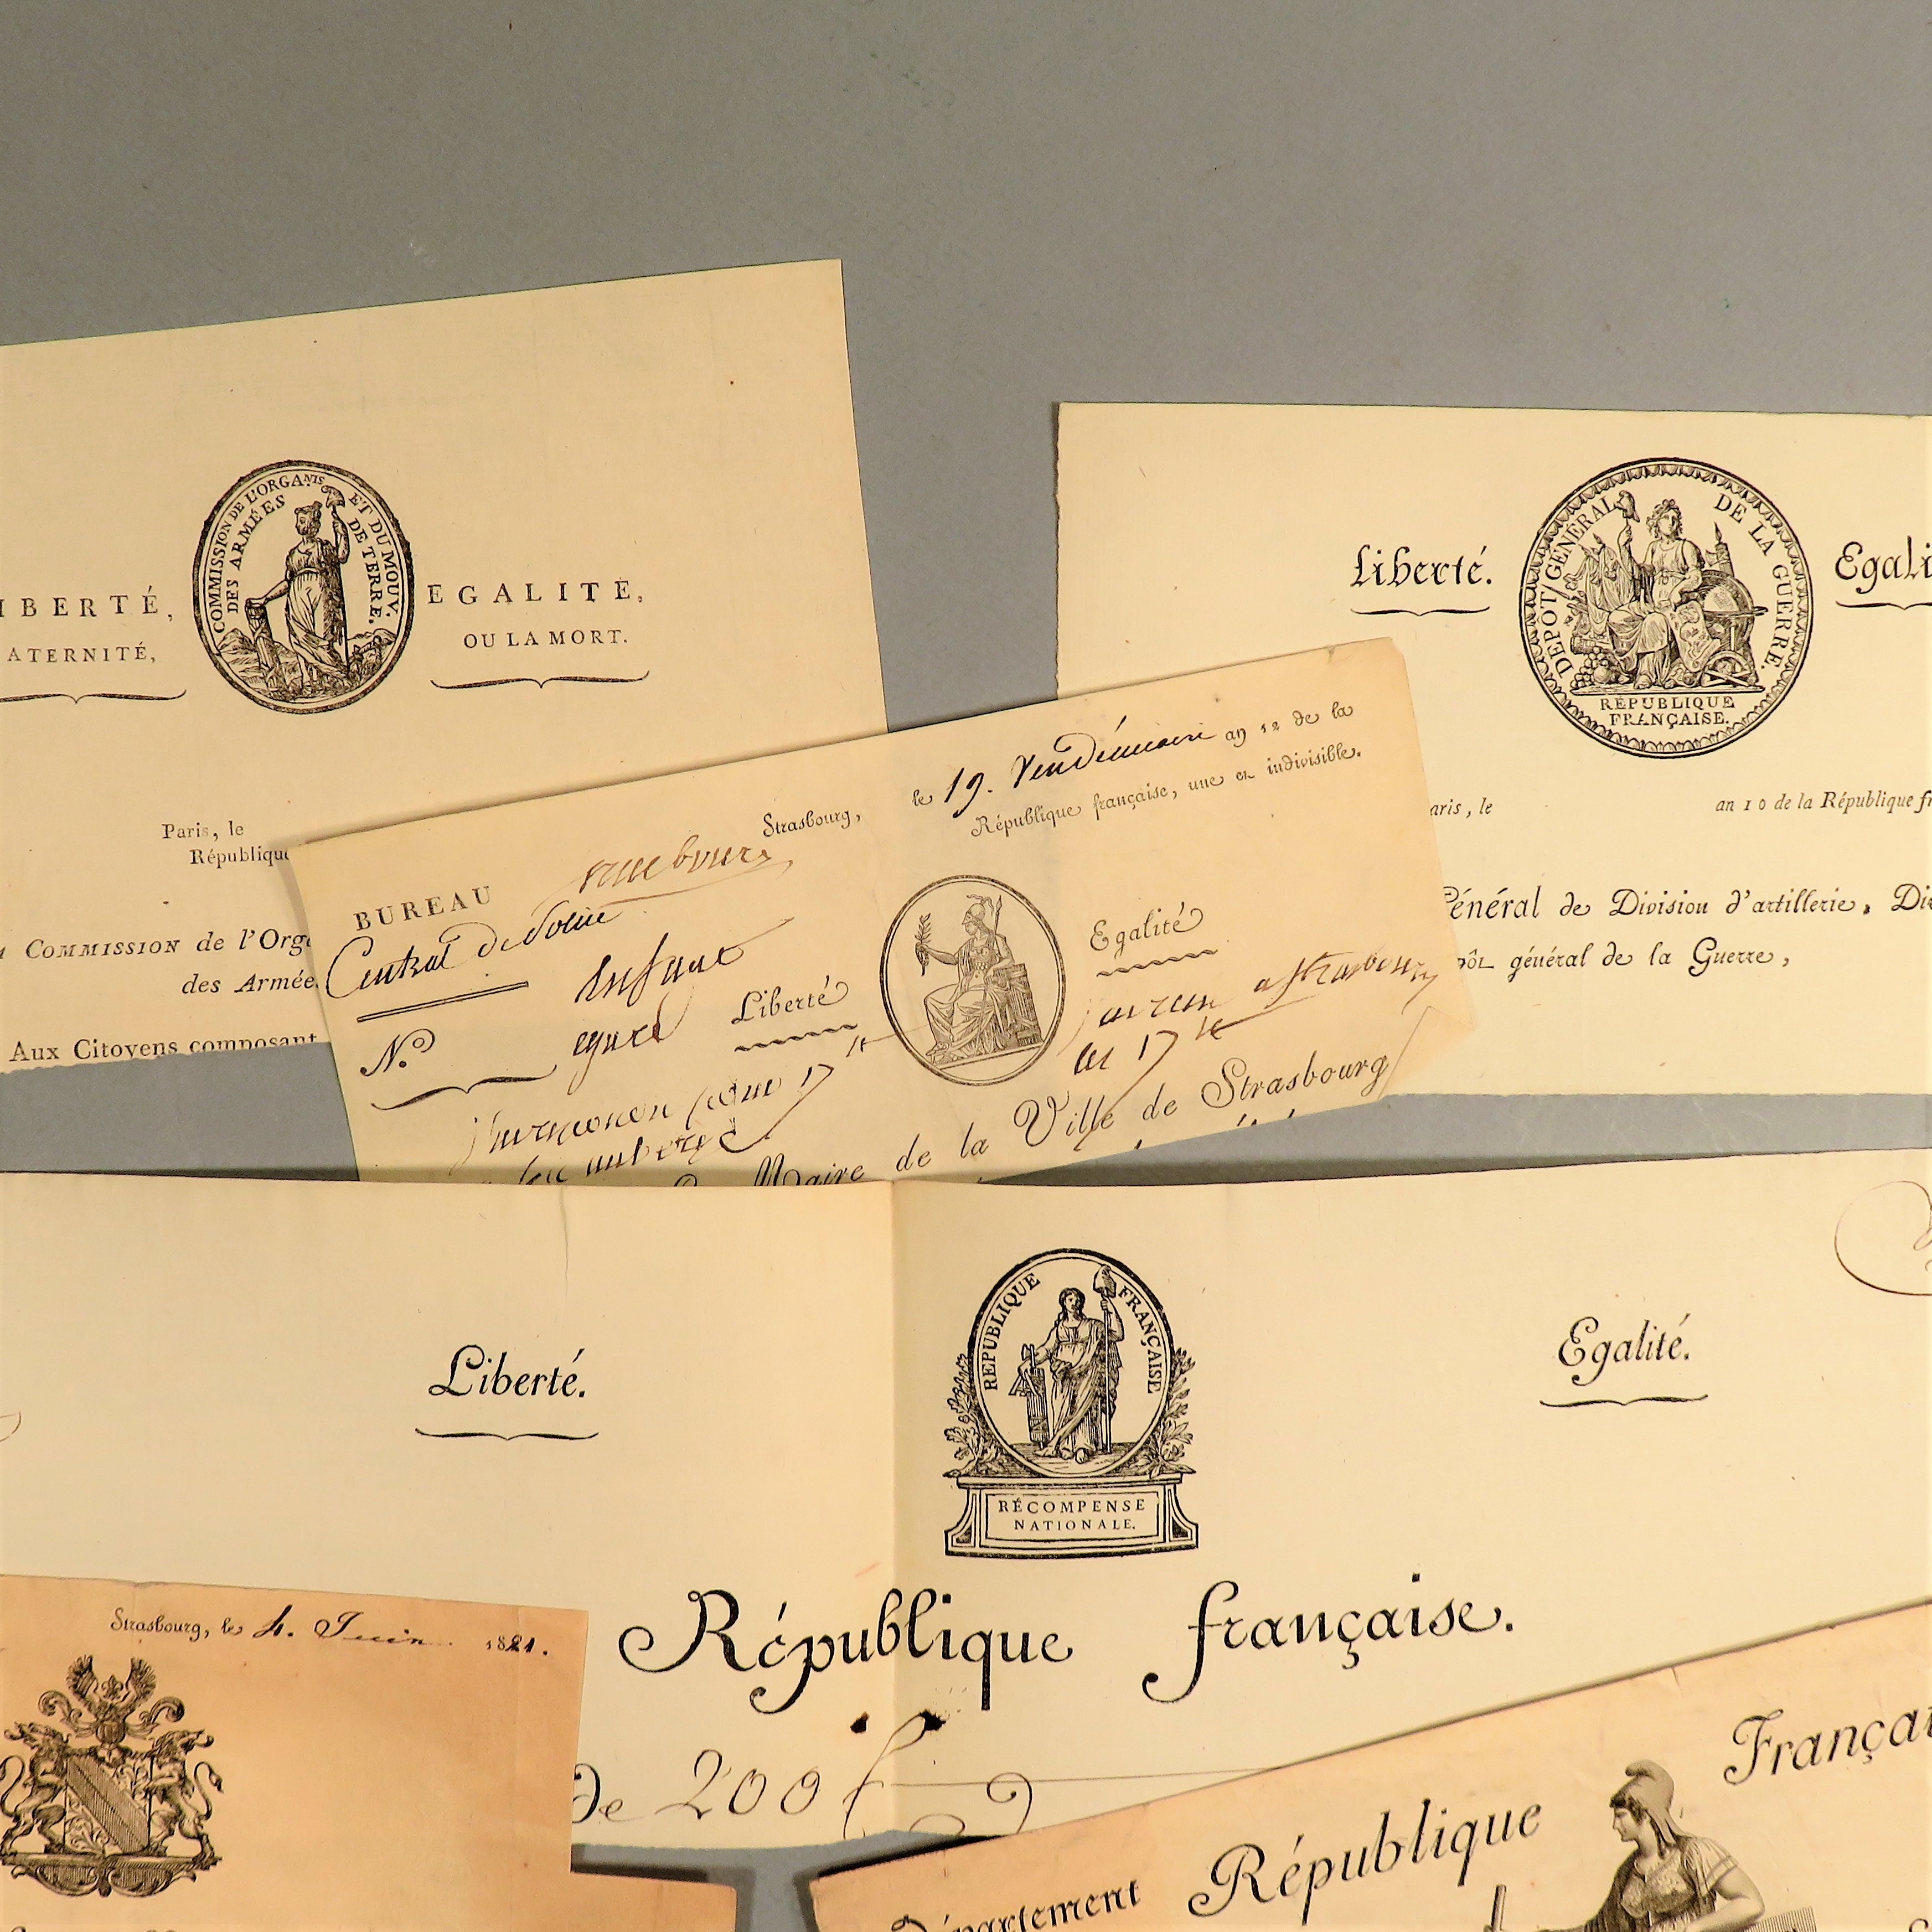 COMMISSION DE L'ORGANIS ET DU MOUV.
DES ARMÉES DE TERRE.
IBERTÉ, EGALITÉ,
ATERNITÉ, OU LA MORT.
Paris, le
République
COMMISSION de l'Orga
des Armée
Aux Citoyens composant
DÉPOT GÉNÉRAL DE LA GUERRE.
RÉPUBLIQUE
FRANÇAISE.
Liberté. Egali
aris, le an 10 de la République fr
Général de Division d'artillerie, Di
pôt général de la Guerre,
Strasbourg, le 19. Vendémiaire an 12 de la
République française, une et indivisible.
BUREAU
Central de Police
N.º
Liberté Egalité
a Strasbourg
le 17
Maire de la Ville de Strasbourg
REPUBLIQUE FRANÇAISE
Liberté. Egalité.
RÉCOMPENSE
NATIONALE.
République française.
de 200 f
Strasbourg, le 4. Juin 1821.
République Françai
épartement